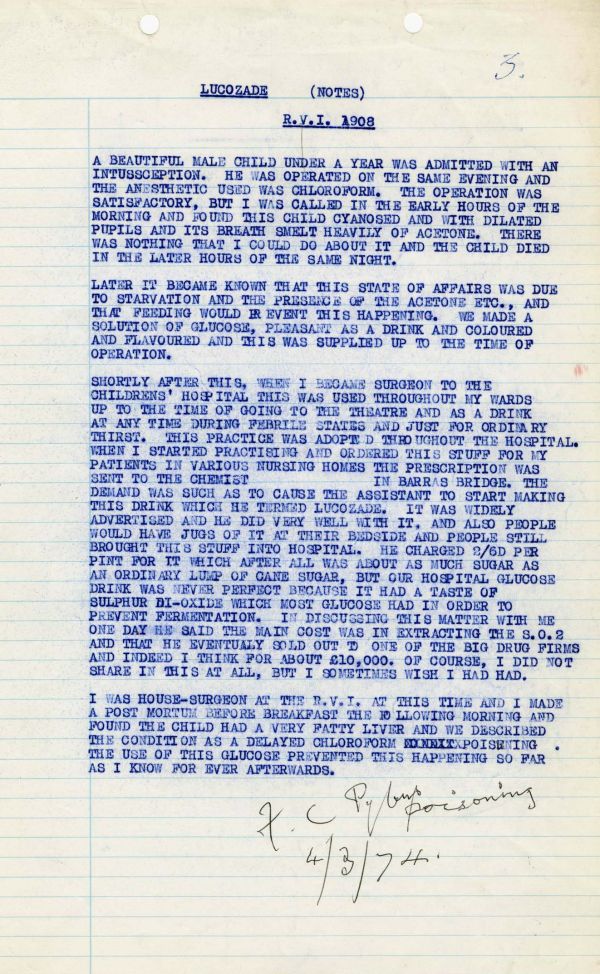 3.
LUCOZADE (NOTES)
R.V.I. 1908
A BEAUTIFUL MALE CHILD UNDER A YEAR WAS ADMITTED WITH AN
INTUSSCEPTION. HE WAS OPERATED ON THE SAME EVENING AND
THE ANESTHETIC USED WAS CHLOROFORM. THE OPERATION WAS
SATISFACTORY, BUT I WAS CALLED IN THE EARLY HOURS OF THE
MORNING AND FOUND THIS CHILD CYANOSED AND WITH DILATED
PUPILS AND ITS BREATH SMELT HEAVILY OF ACETONE. THERE
WAS NOTHING THAT I COULD DO ABOUT IT AND THE CHILD DIED
IN THE LATER HOURS OF THE SAME NIGHT.
LATER IT BECAME KNOWN THAT THIS STATE OF AFFAIRS WAS DUE
TO STARVATION AND THE PRESENCE OF THE ACETONE ETC., AND
THAT FEEDING WOULD PREVENT THIS HAPPENING. WE MADE A
SOLUTION OF GLUCOSE, PLEASANT AS A DRINK AND COLOURED
AND FLAVOURED AND THIS WAS SUPPLIED UP TO THE TIME OF
OPERATION.
SHORTLY AFTER THIS, WHEN I BECAME SURGEON TO THE
CHILDRENS' HOSPITAL THIS WAS USED THROUGHOUT MY WARDS
UP TO THE TIME OF GOING TO THE THEATRE AND AS A DRINK
AT ANY TIME DURING FEBRILE STATES AND JUST FOR ORDINARY
THIRST. THIS PRACTICE WAS ADOPTED THROUGHOUT THE HOSPITAL.
WHEN I STARTED PRACTISING AND ORDERED THIS STUFF FOR MY
PATIENTS IN VARIOUS NURSING HOMES THE PRESCRIPTION WAS
SENT TO THE CHEMIST IN BARRAS BRIDGE. THE
DEMAND WAS SUCH AS TO CAUSE THE ASSISTANT TO START MAKING
THIS DRINK WHICH HE TERMED LUCOZADE. IT WAS WIDELY
ADVERTISED AND HE DID VERY WELL WITH IT, AND ALSO PEOPLE
WOULD HAVE JUGS OF IT AT THEIR BEDSIDE AND PEOPLE STILL
BROUGHT THIS STUFF INTO HOSPITAL. HE CHARGED 2/6D PER
PINT FOR IT WHICH AFTER ALL WAS ABOUT AS MUCH SUGAR AS
AN ORDINARY LUMP OF CANE SUGAR, BUT OUR HOSPITAL GLUCOSE
DRINK WAS NEVER PERFECT BECAUSE IT HAD A TASTE OF
SULPHUR DI-OXIDE WHICH MOST GLUCOSE HAD IN ORDER TO
PREVENT FERMENTATION. IN DISCUSSING THIS MATTER WITH ME
ONE DAY HE SAID THE MAIN COST WAS IN EXTRACTING THE S.O.2
AND THAT HE EVENTUALY SOLD OUT TO ONE OF THE BIG DRUG FIRMS
AND INDEED I THINK FOR ABOUT £10,000. OF COURSE, I DID NOT
SHARE IN THIS AT ALL, BUT I SOMETIMES WISH I HAD HAD.
I WAS HOUSE-SURGEON AT THE R.V.I. AT THIS TIME AND I MADE
A POST MORTUM BEFORE BREAKFAST THE FOLLOWING MORNING AND
FOUND THE CHILD HAD A VERY FATTY LIVER AND WE DESCRIBED
THE CONDITION AS A DELAYED CHLOROFORM POISENING .
THE USE OF THIS GLUCOSE PREVENTED THIS HAPPENING SO FAR
AS I KNOW FOR EVER AFTERWARDS.
F. C Pybus poisoning
4/3/74.